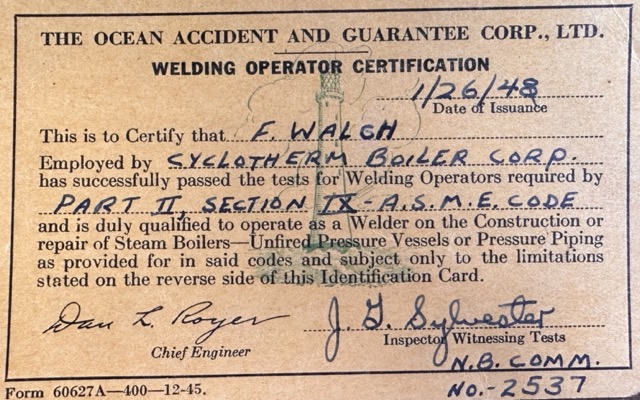 THE OCEAN ACCIDENT AND GUARANTEE CORP., LTD.
WELDING OPERATOR CERTIFICATION
1/26/48
Date of Issuance
This is to Certify that F. WALSH
Employed by CYCLOTHERM BOILER CORP.
has successfully passed the tests for Welding Operators required by
PART II, SECTION IX - A.S.M.E. CODE
and is duly qualified to operate as a Welder on the Construction or
repair of Steam Boilers—Unfired Pressure Vessels or Pressure Piping
as provided for in said codes and subject only to the limitations
stated on the reverse side of this Identification Card.
Dan L. Royer J. G. Sylvester
Chief Engineer Inspector Witnessing Tests
N.B. COMM.
Form 60627A—400—12-45. NO.-2537